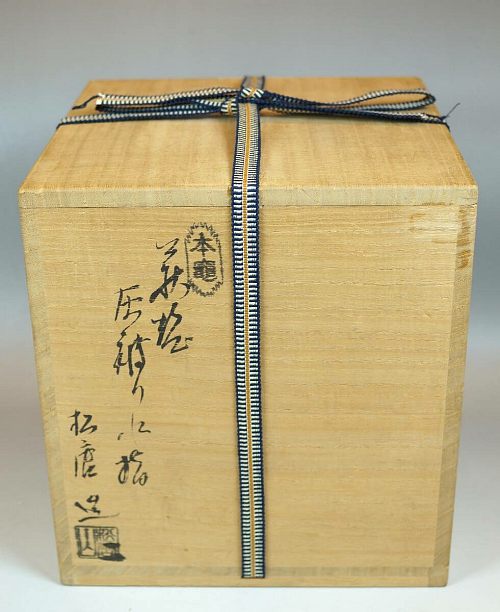 本竈
萩焼
灰被り水指
松唐造